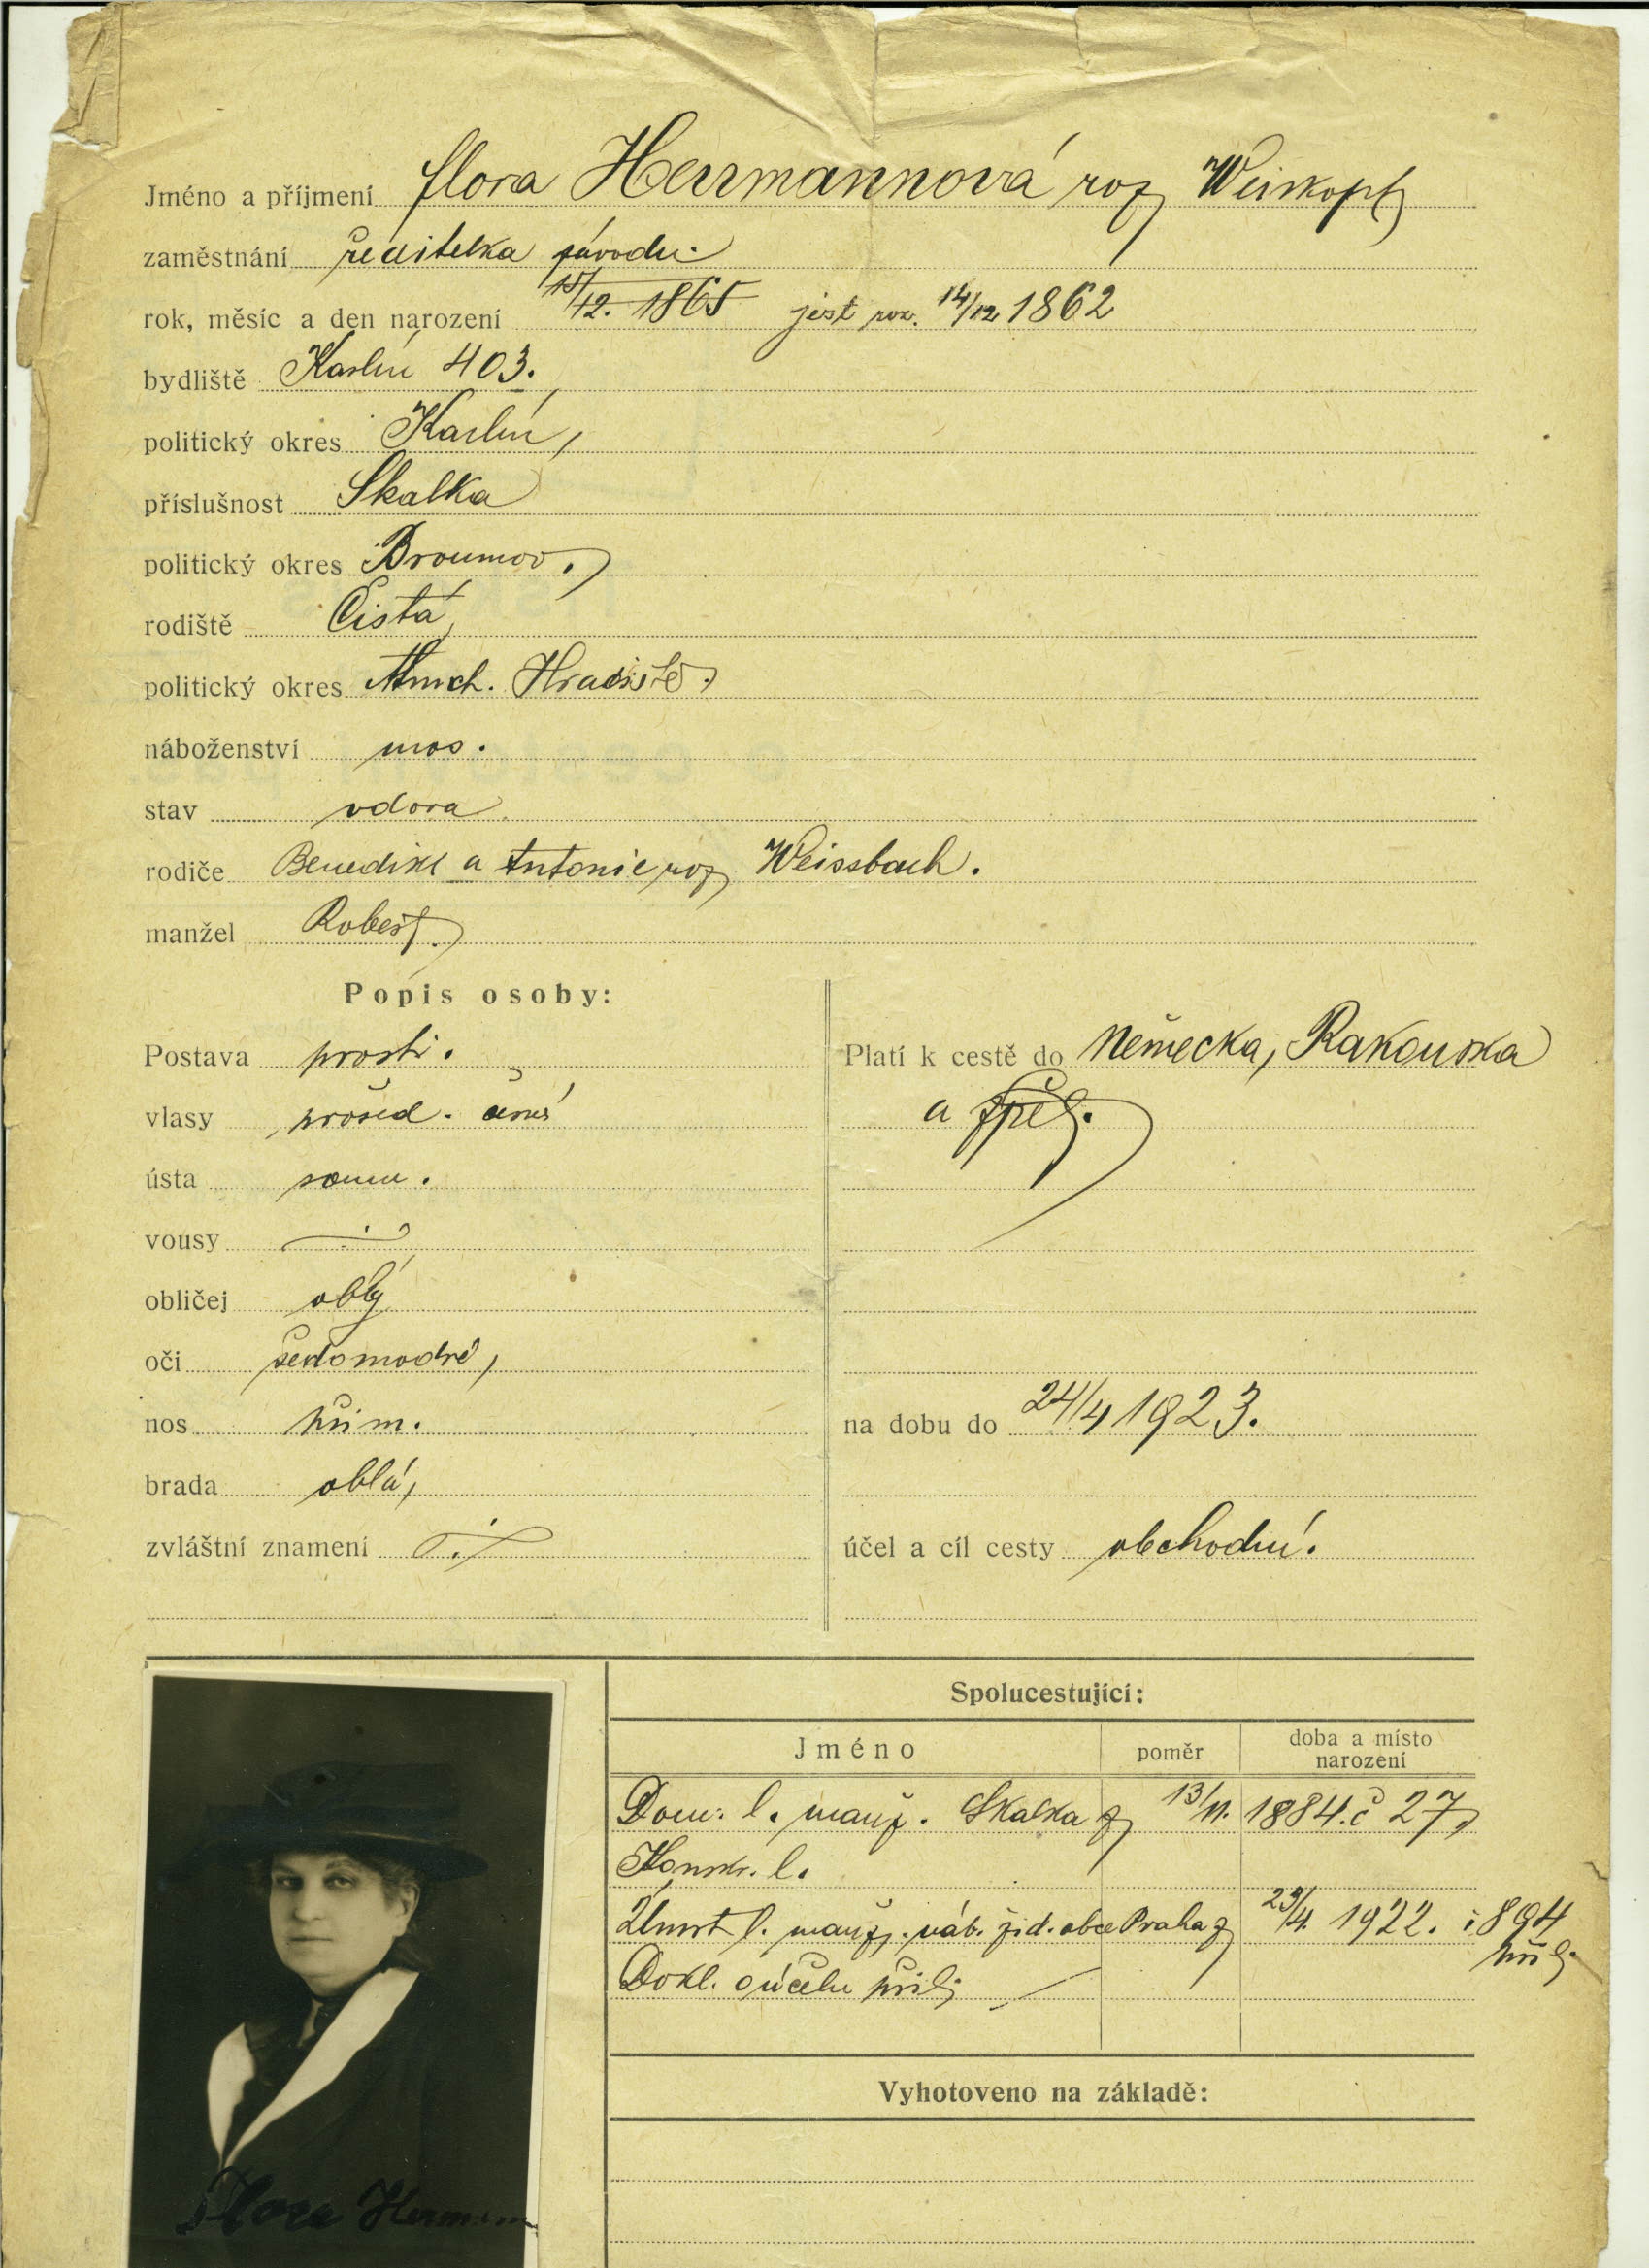 Jméno a příjmení Flora Herrmannová roz Weiskopf
zaměstnání ředitelka závodu.
rok, měsíc a den narození 15/12. 1865 jest roz. 14/12 1862
bydliště Karlín 403.
politický okres Karlín,
příslušnost Skalka
politický okres Broumov.
rodiště Čistá,
politický okres Mnich. Hradiště.
náboženství mos.
stav vdova
rodiče Benedikt a Antonie roz Weissbach.
manžel Robert.
Popis osoby:
Postava prostř.
vlasy prošed. černé
ústa soum.
vousy
obličej oblý
oči šedomodré,
nos přim.
brada oblá,
zvláštní znamení
Platí k cestě do Německa, Rakouska
a zpět.
na dobu do 24/4 1923.
účel a cíl cesty obchodní.
Spolucestující:
Jméno
poměr
doba a místo
narození
Dom. l. manž. Skalka z 13/11. 1884. č 27,
Konskr. l.
Úmrt l. manž. náb. žid. obce Praha z 1922. č 894
přil.
Dokl. o účelu přil.
Vyhotoveno na základě:
Flora Hermann